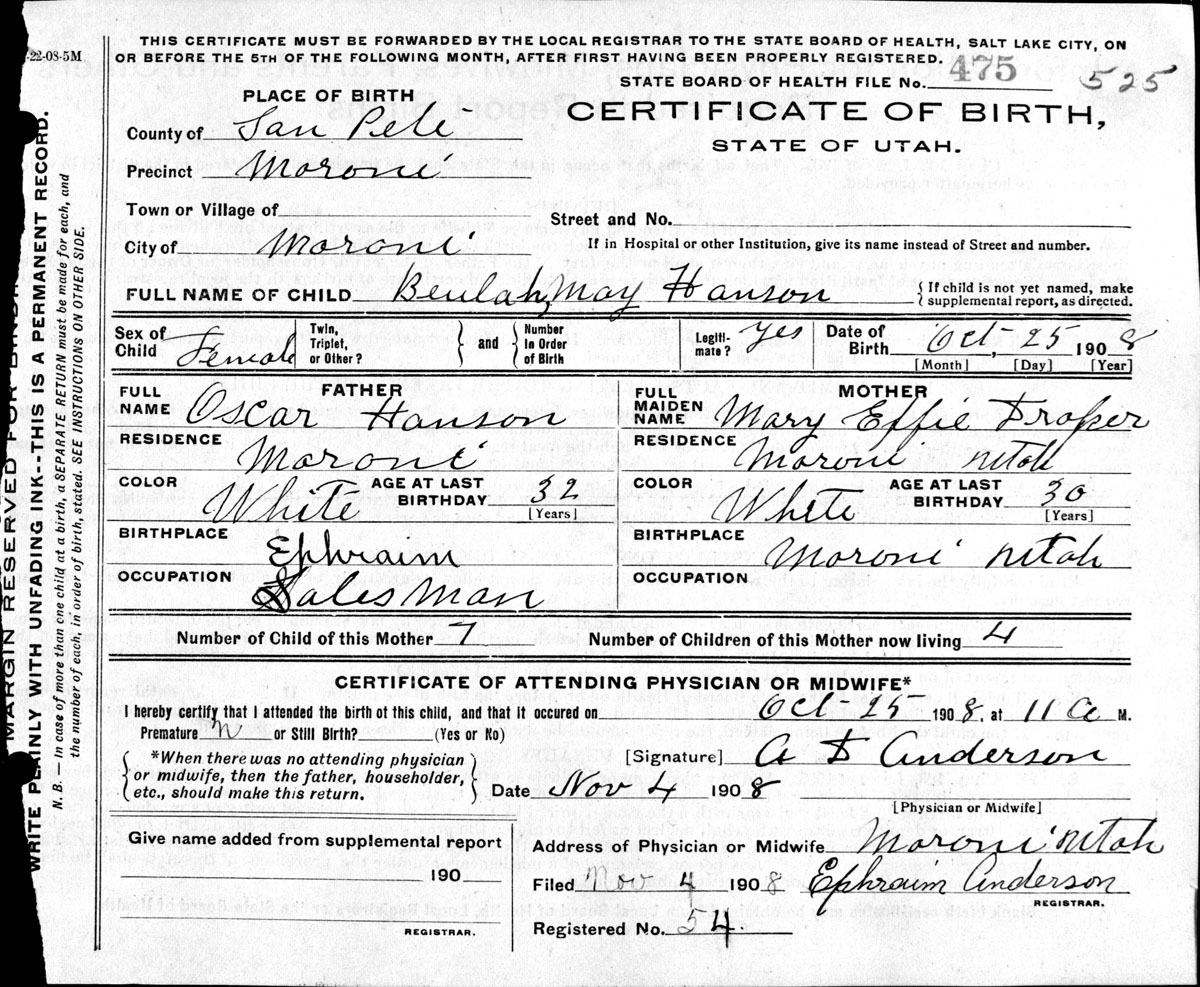 -22-08-5M
THIS CERTIFICATE MUST BE FORWARDED BY THE LOCAL REGISTRAR TO THE STATE BOARD OF HEALTH, SALT LAKE CITY, ON
OR BEFORE THE 5TH OF THE FOLLOWING MONTH, AFTER FIRST HAVING BEEN PROPERLY REGISTERED.
STATE BOARD OF HEALTH FILE No. 475 525
PLACE OF BIRTH
CERTIFICATE OF BIRTH,
STATE OF UTAH.
County of San Pete
Precinct Moroni
Town or Village of
Street and No.
City of Moroni
If in Hospital or other Institution, give its name instead of Street and number.
FULL NAME OF CHILD Beulah, May Hanson
{ If child is not yet named, make
supplemental report, as directed.
Sex of Child Female
Twin, Triplet, or Other? } and { Number In Order of Birth
Legiti-mate? Yes
Date of Birth Oct, 25 1908
[Month] [Day] [Year]
FATHER
FULL NAME Oscar Hanson
RESIDENCE Moroni
COLOR White AGE AT LAST BIRTHDAY 32
[Years]
BIRTHPLACE Ephraim
OCCUPATION Sales Man
MOTHER
FULL MAIDEN NAME Mary Effie Draper
RESIDENCE Moroni Utah
COLOR White AGE AT LAST BIRTHDAY 30
[Years]
BIRTHPLACE Moroni Utah
OCCUPATION
Number of Child of this Mother 7 Number of Children of this Mother now living 4
CERTIFICATE OF ATTENDING PHYSICIAN OR MIDWIFE*
I hereby certify that I attended the birth of this child, and that it occured on Oct-25 1908. at 11 a M.
Premature N or Still Birth? (Yes or No)
[Signature] A D Anderson
{ *When there was no attending physician
or midwife, then the father, householder,
etc., should make this return. }
Date Nov 4 1908
[Physician or Midwife]
Give name added from supplemental report
190
REGISTRAR.
Address of Physician or Midwife Moroni Utah
Filed Nov 4 1908 Ephraim Anderson
REGISTRAR.
Registered No. 54.
MARGIN RESERVED FOR
WRITE PLAINLY WITH UNFADING INK--THIS IS A PERMANENT RECORD.
N. B. — In case of more than one child at a birth, a SEPARATE RETURN must be made for each, and
the number of each, in order of birth, stated. SEE INSTRUCTIONS ON OTHER SIDE.